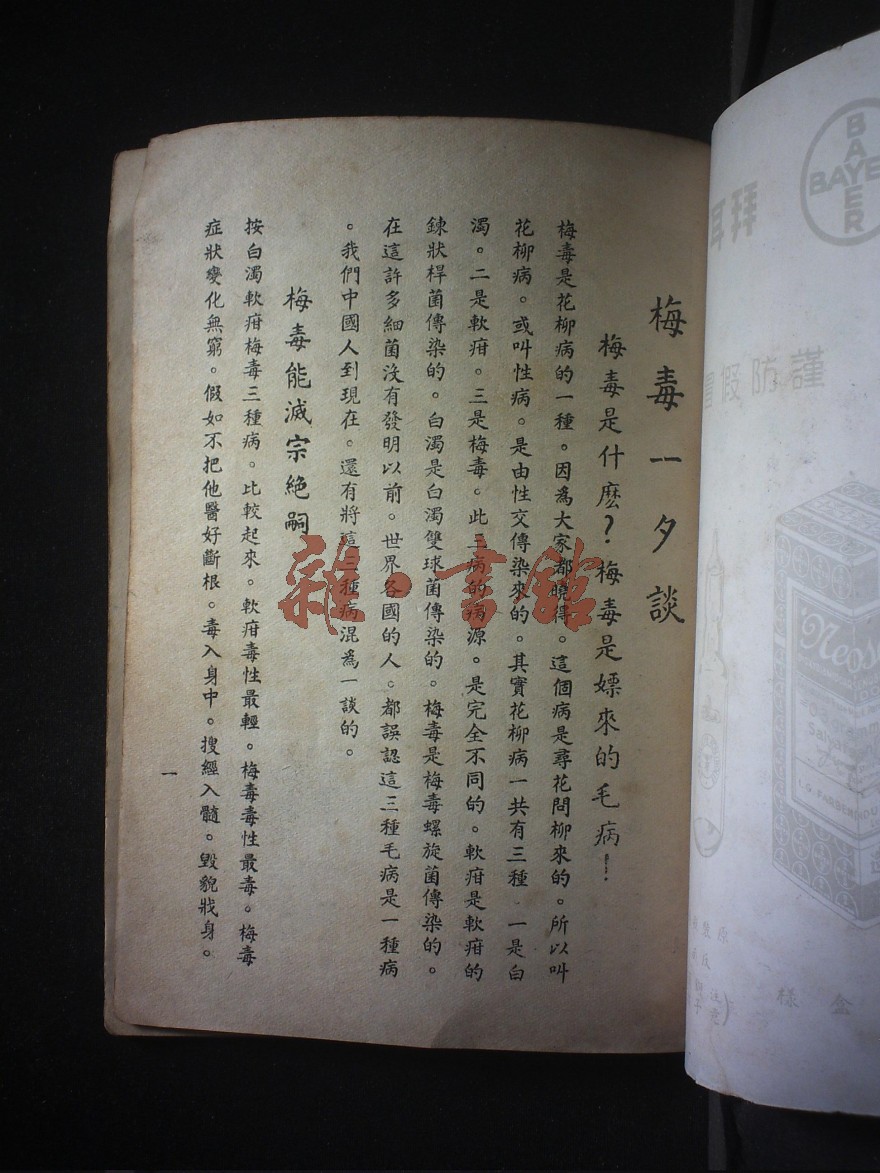 梅毒一夕談
梅毒是什麽?梅毒是嫖來的毛病!
梅毒是花柳病的一種。因爲大家都曉得。這個病是尋花問柳來的。所以叫
花柳病。或叫性病。是由性交傳染來的。其實花柳病一共有三種。一是白
濁。二是軟疳。三是梅毒。此三病的病源。是完全不同的。軟疳是軟疳的
鍊狀桿菌傳染的。白濁是白濁雙球菌傳染的。梅毒是梅毒螺旋菌傳染的。
在這許多細菌沒有發明以前。世界各國的人。都誤認這三種毛病是一種病
。我們中國人到現在。還有將這三種病混爲一談的。
梅毒能滅宗絶嗣
按白濁軟疳梅毒三種病。比較起來。軟疳毒性最輕。梅毒毒性最毒。梅毒
症狀變化無窮。假如不把他醫好斷根。毒入身中。搜經入髓。毀貌戕身。
一
雜·書館
BAYER
BAYE
拜耳
謹防假冒
Neos
盒樣